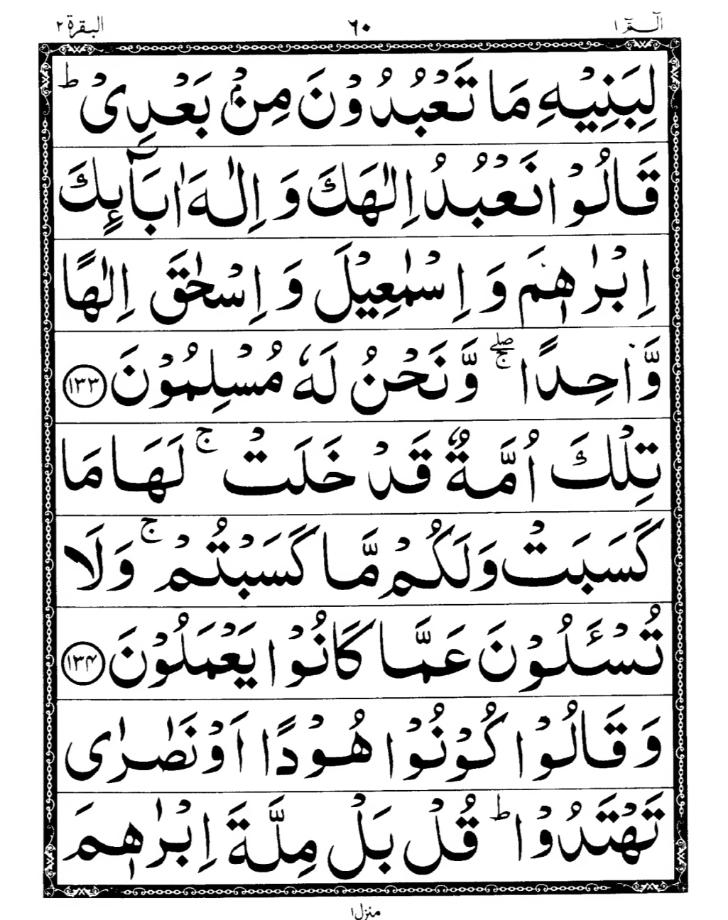 البقرة ۲ ۶۰ الٓـمّٓ ۱
لِبَنِيْهِ مَا تَعْبُدُوْنَ مِنْۢ بَعْدِىْ ؕ
قَالُوْا نَعْبُدُ اِلٰهَكَ وَ اِلٰهَ اٰبَآئِكَ
اِبْرٰهٖمَ وَ اِسْمٰعِيْلَ وَ اِسْحٰقَ اِلٰهًا
وَّاحِدًا ۖۚ وَّنَحْنُ لَهٗ مُسْلِمُوْنَ ﴿۱۳۳﴾
تِلْكَ اُمَّةٌ قَدْ خَلَتْ ۚ لَهَا مَا
كَسَبَتْ وَلَكُمْ مَّا كَسَبْتُمْ ۚ وَلَا
تُسْـَٔلُوْنَ عَمَّا كَانُوْا يَعْمَلُوْنَ ﴿۱۳۴﴾
وَ قَالُوْا كُوْنُوْا هُوْدًا اَوْ نَصٰرٰى
تَهْتَدُوْا ؕ قُلْ بَلْ مِلَّةَ اِبْرٰهٖمَ
منزل ۱